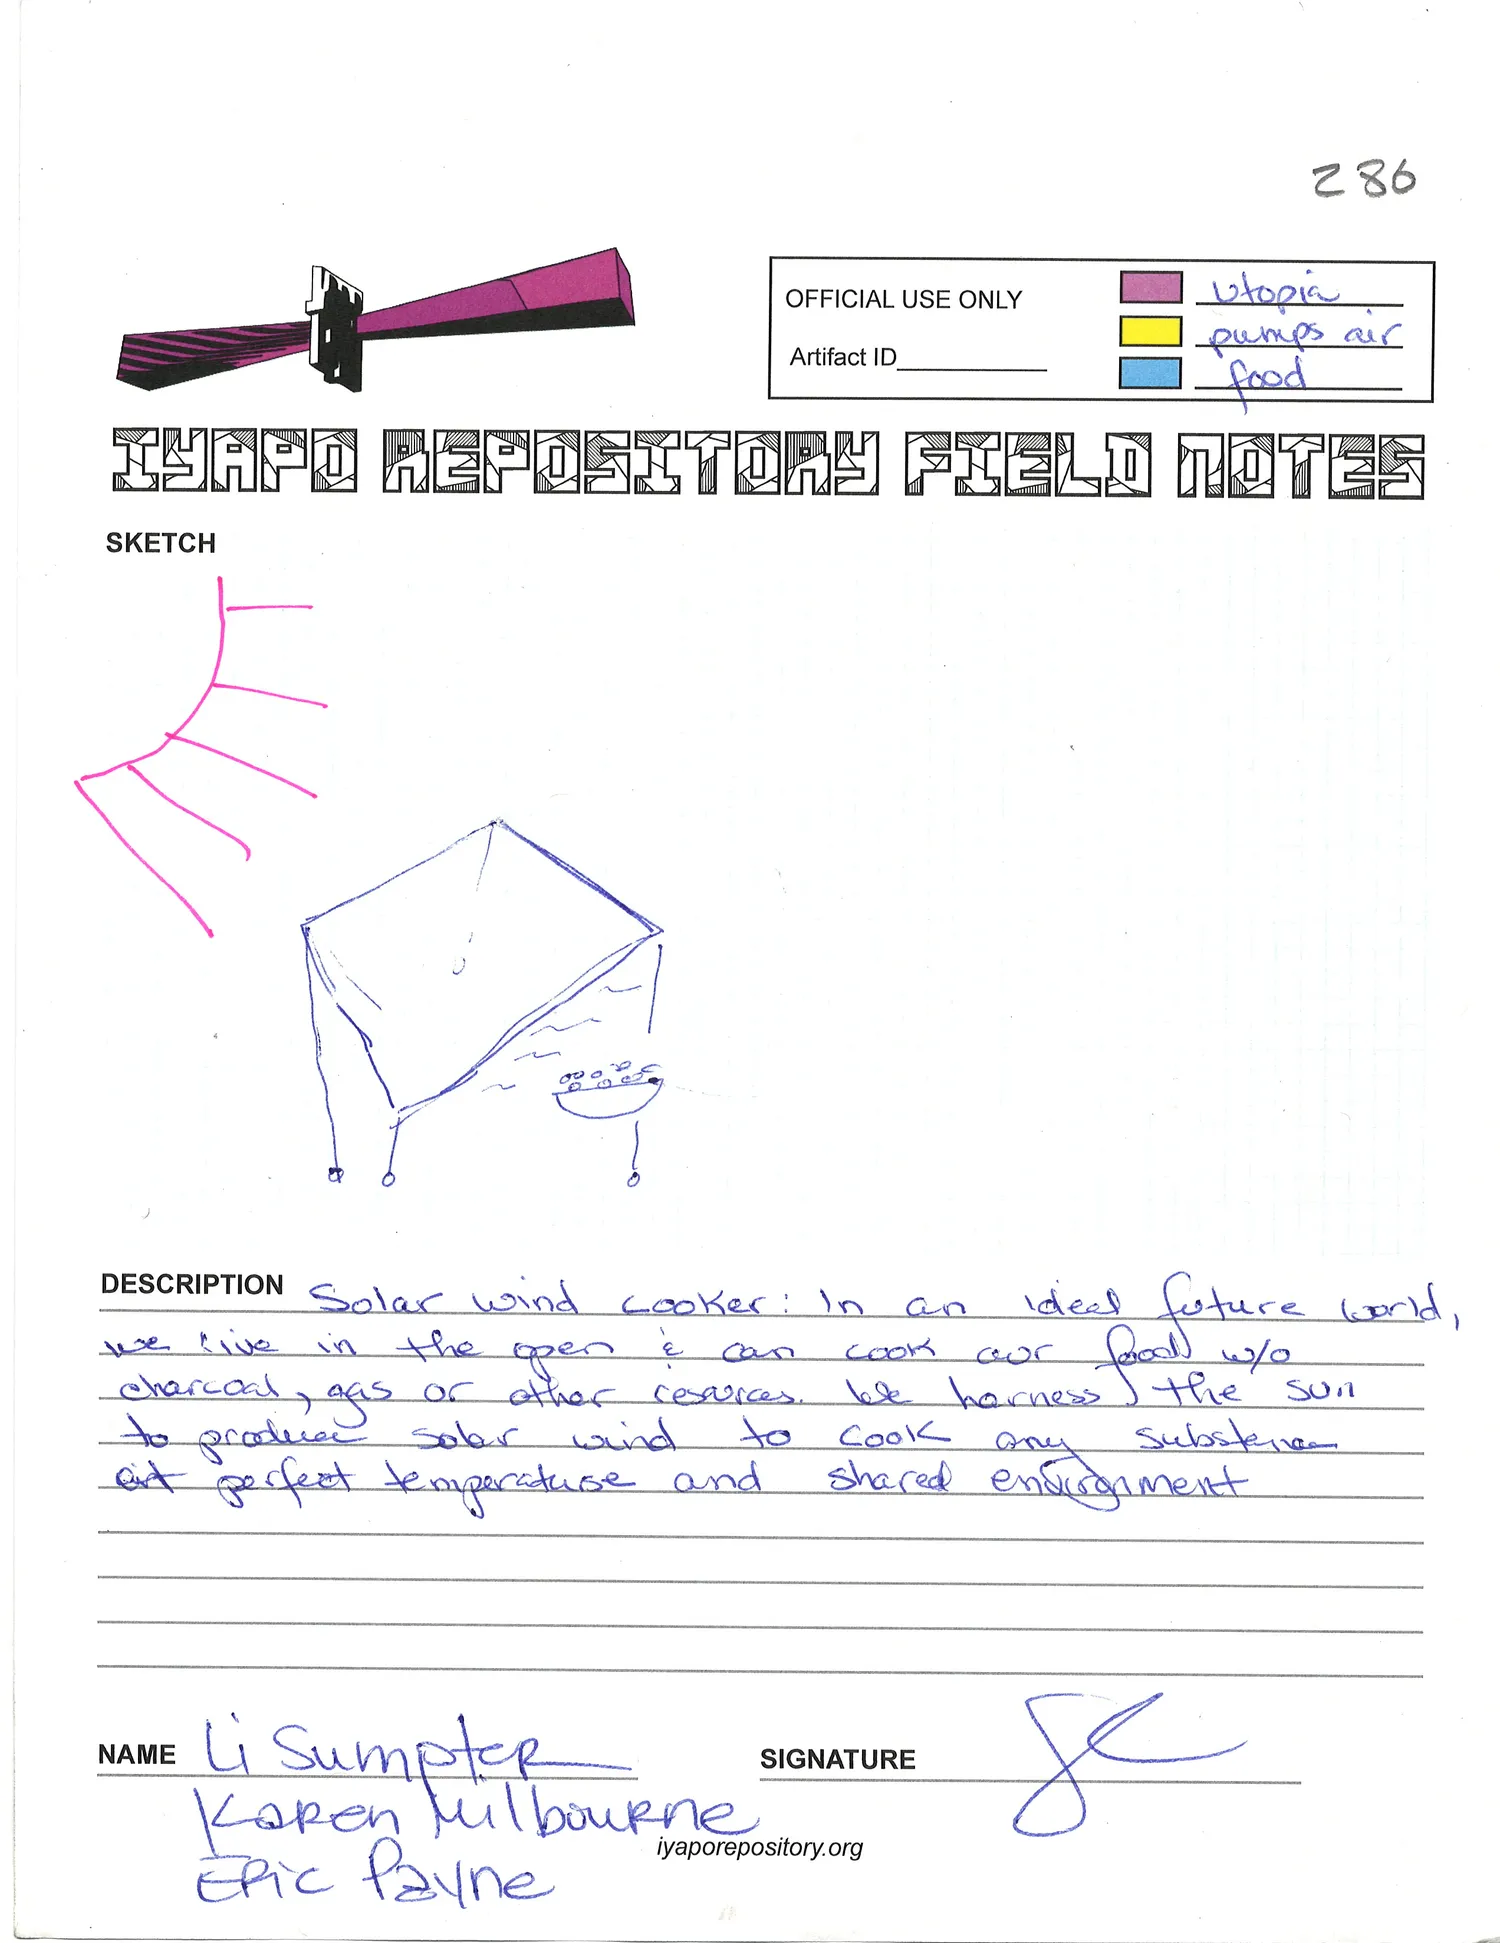 286
OFFICIAL USE ONLY
Artifact ID
utopia
pumps air
food
IYAPO REPOSITORY FIELD NOTES
SKETCH
DESCRIPTION Solar wind cooker: In an ideal future world,
we live in the open & can cook our food w/o
charcoal, gas or other resources. We harness the sun
to produce solar wind to cook any substance
at perfect temperature and shared environment
NAME Li Sumpter
SIGNATURE
Karen Milbourne
iyaporepository.org
Eric Payne